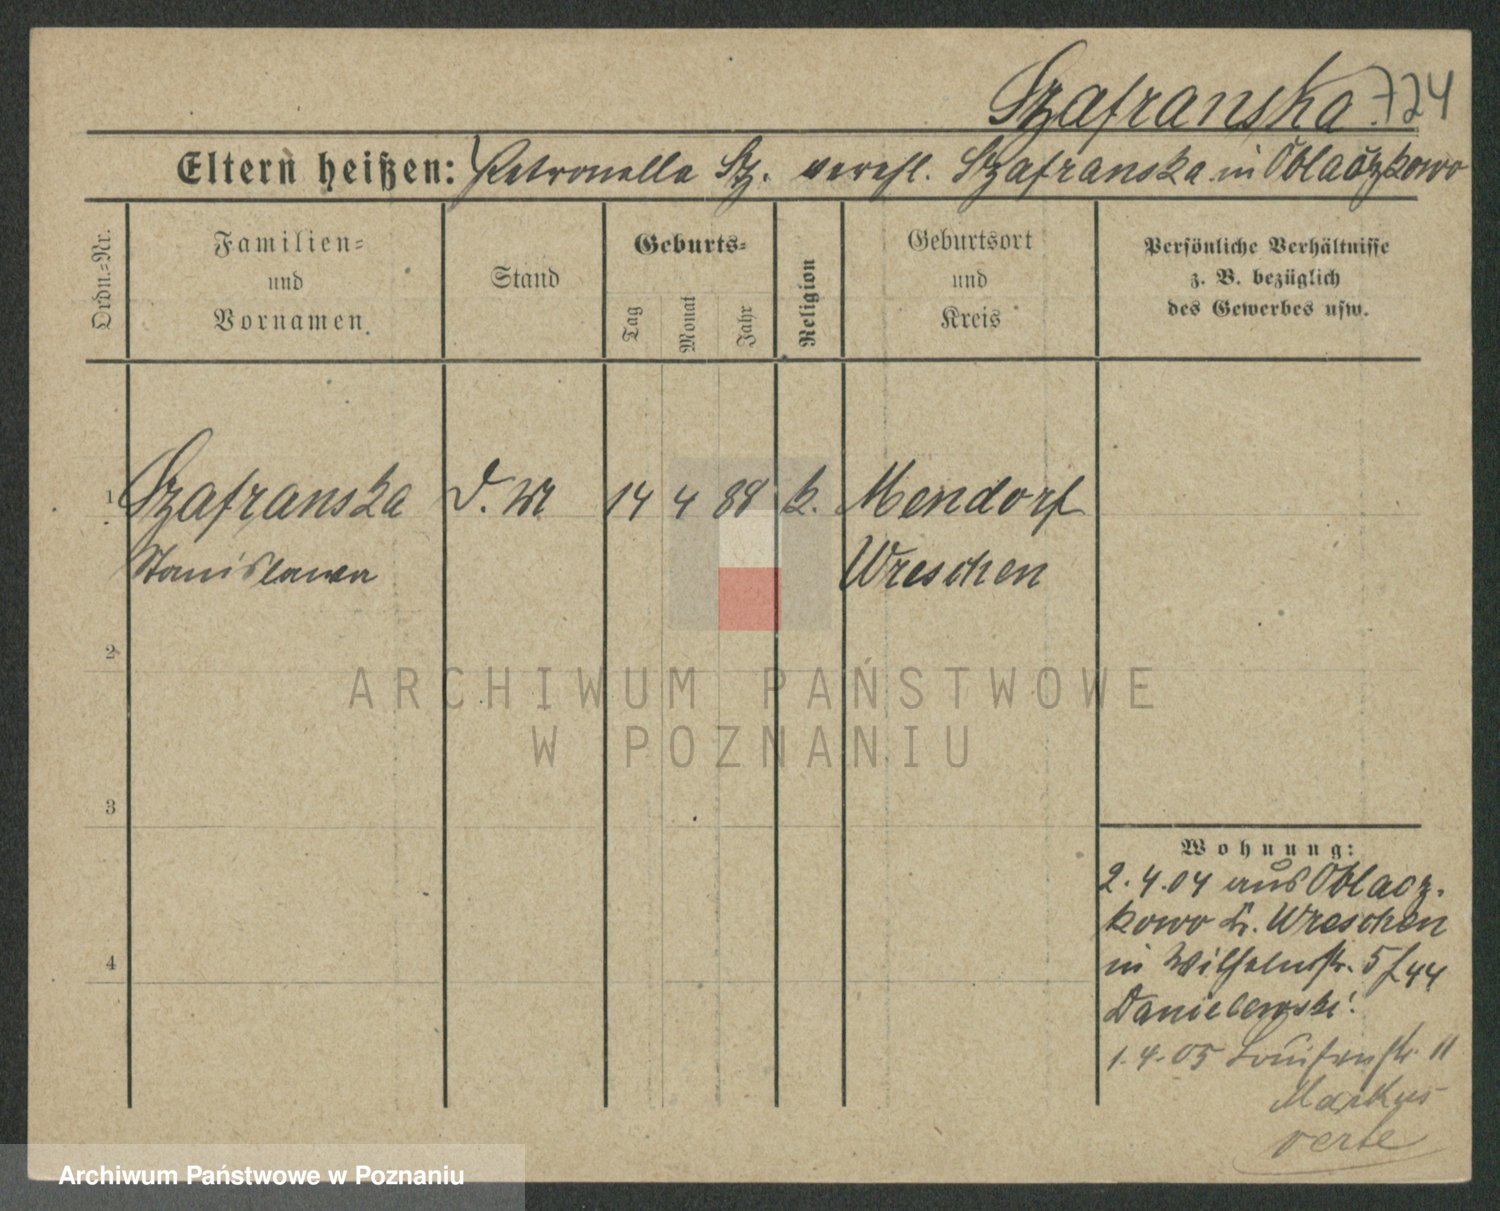 Szafranska 724
Eltern heißen: Petronella Sz. verehl. Szafranska in Oblaczkowo
Ordn.-Nr.
Familien-
und
Vornamen.
Stand
Geburts-
Tag
Monat
Jahr
Religion
Geburtsort
und
Kreis
Persönliche Verhältnisse
z. B. bezüglich
des Gewerbes usw.
1 Szafranska D. M 14 4 88 k. Mendorf
Stanislawa Wreschen
2
3
4
Wohnung:
2.4.04 aus Oblacz-
kowo Kr. Wreschen
in Wilhelmstr. 5
Danielewski.
1.4.05 Louisenstr. 11
Markus
verte
ARCHIWUM PAŃSTWOWE
W POZNANIU
Archiwum Państwowe w Poznaniu